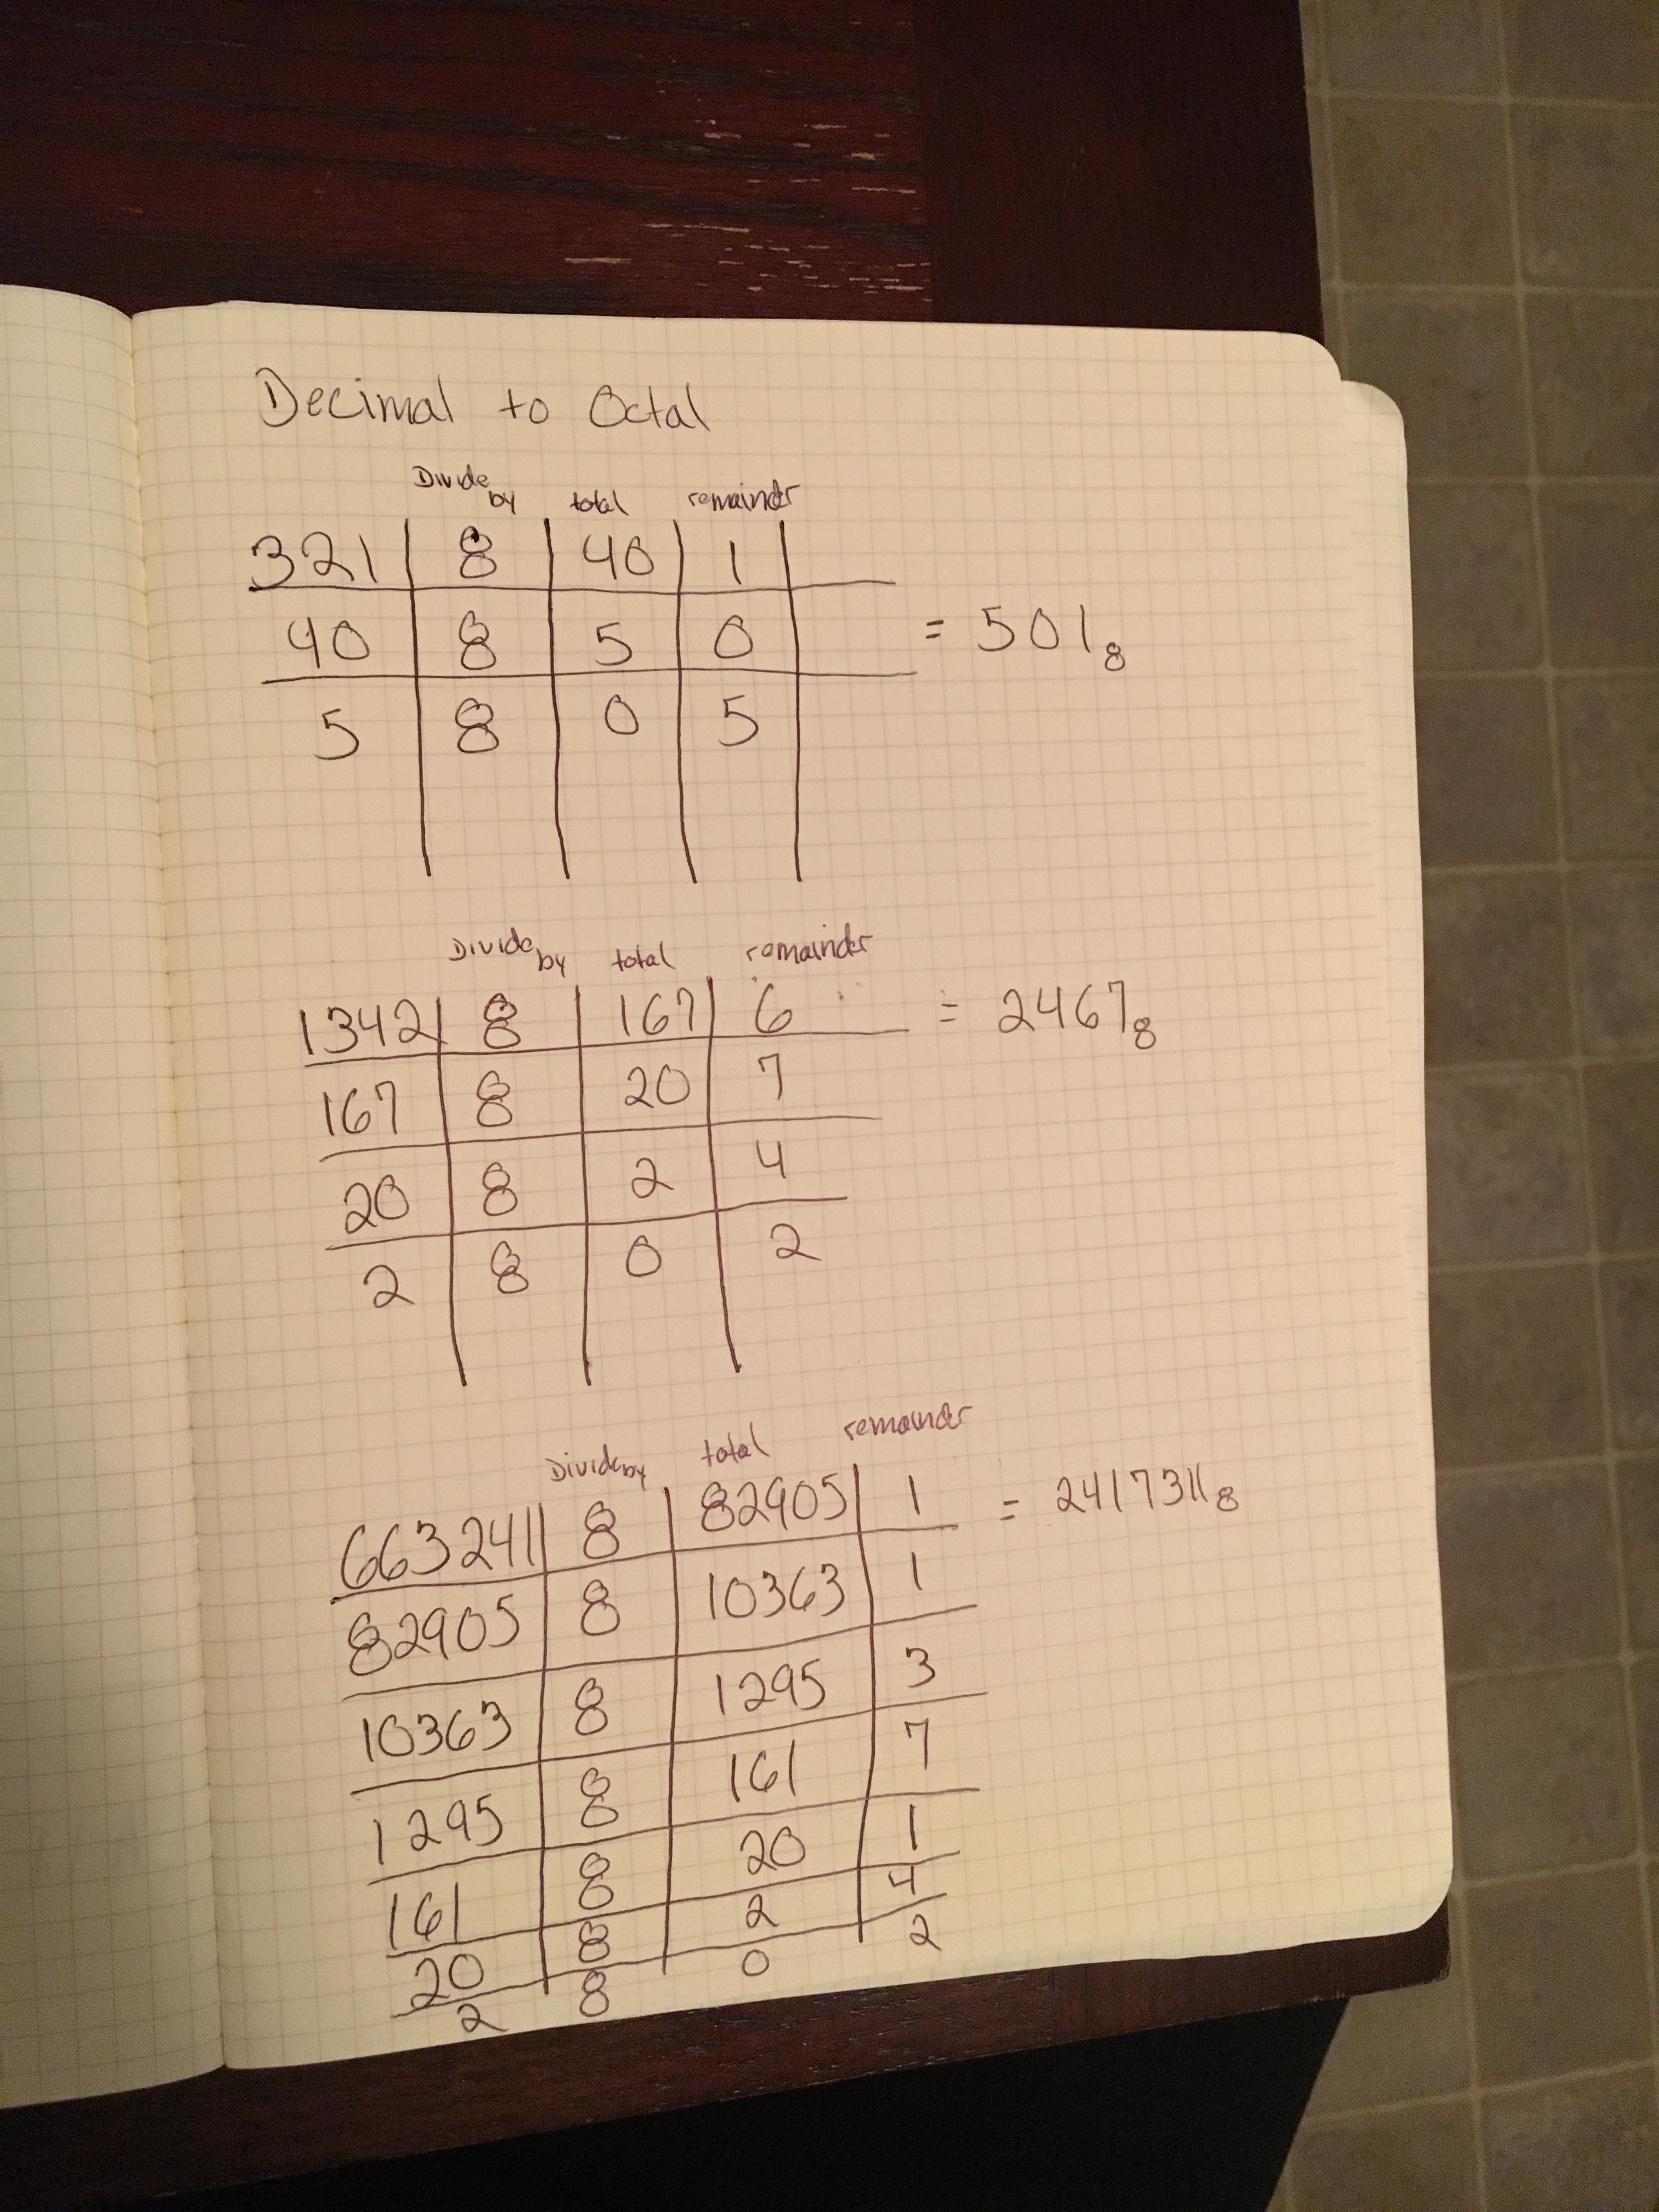 Decimal to Octal
Divide by total remainder
321 8 40 1
40 8 5 0 = 501₈
5 8 0 5
Divide by total remainder
1342 8 167 6 = 2467₈
167 8 20 7
20 8 2 4
2 8 0 2
Divide by total remainder
663241 8 82905 1 = 2417311₈
82905 8 10363 1
10363 8 1295 3
1295 8 161 7
161 8 20 1
20 8 2 4
2 8 0 2